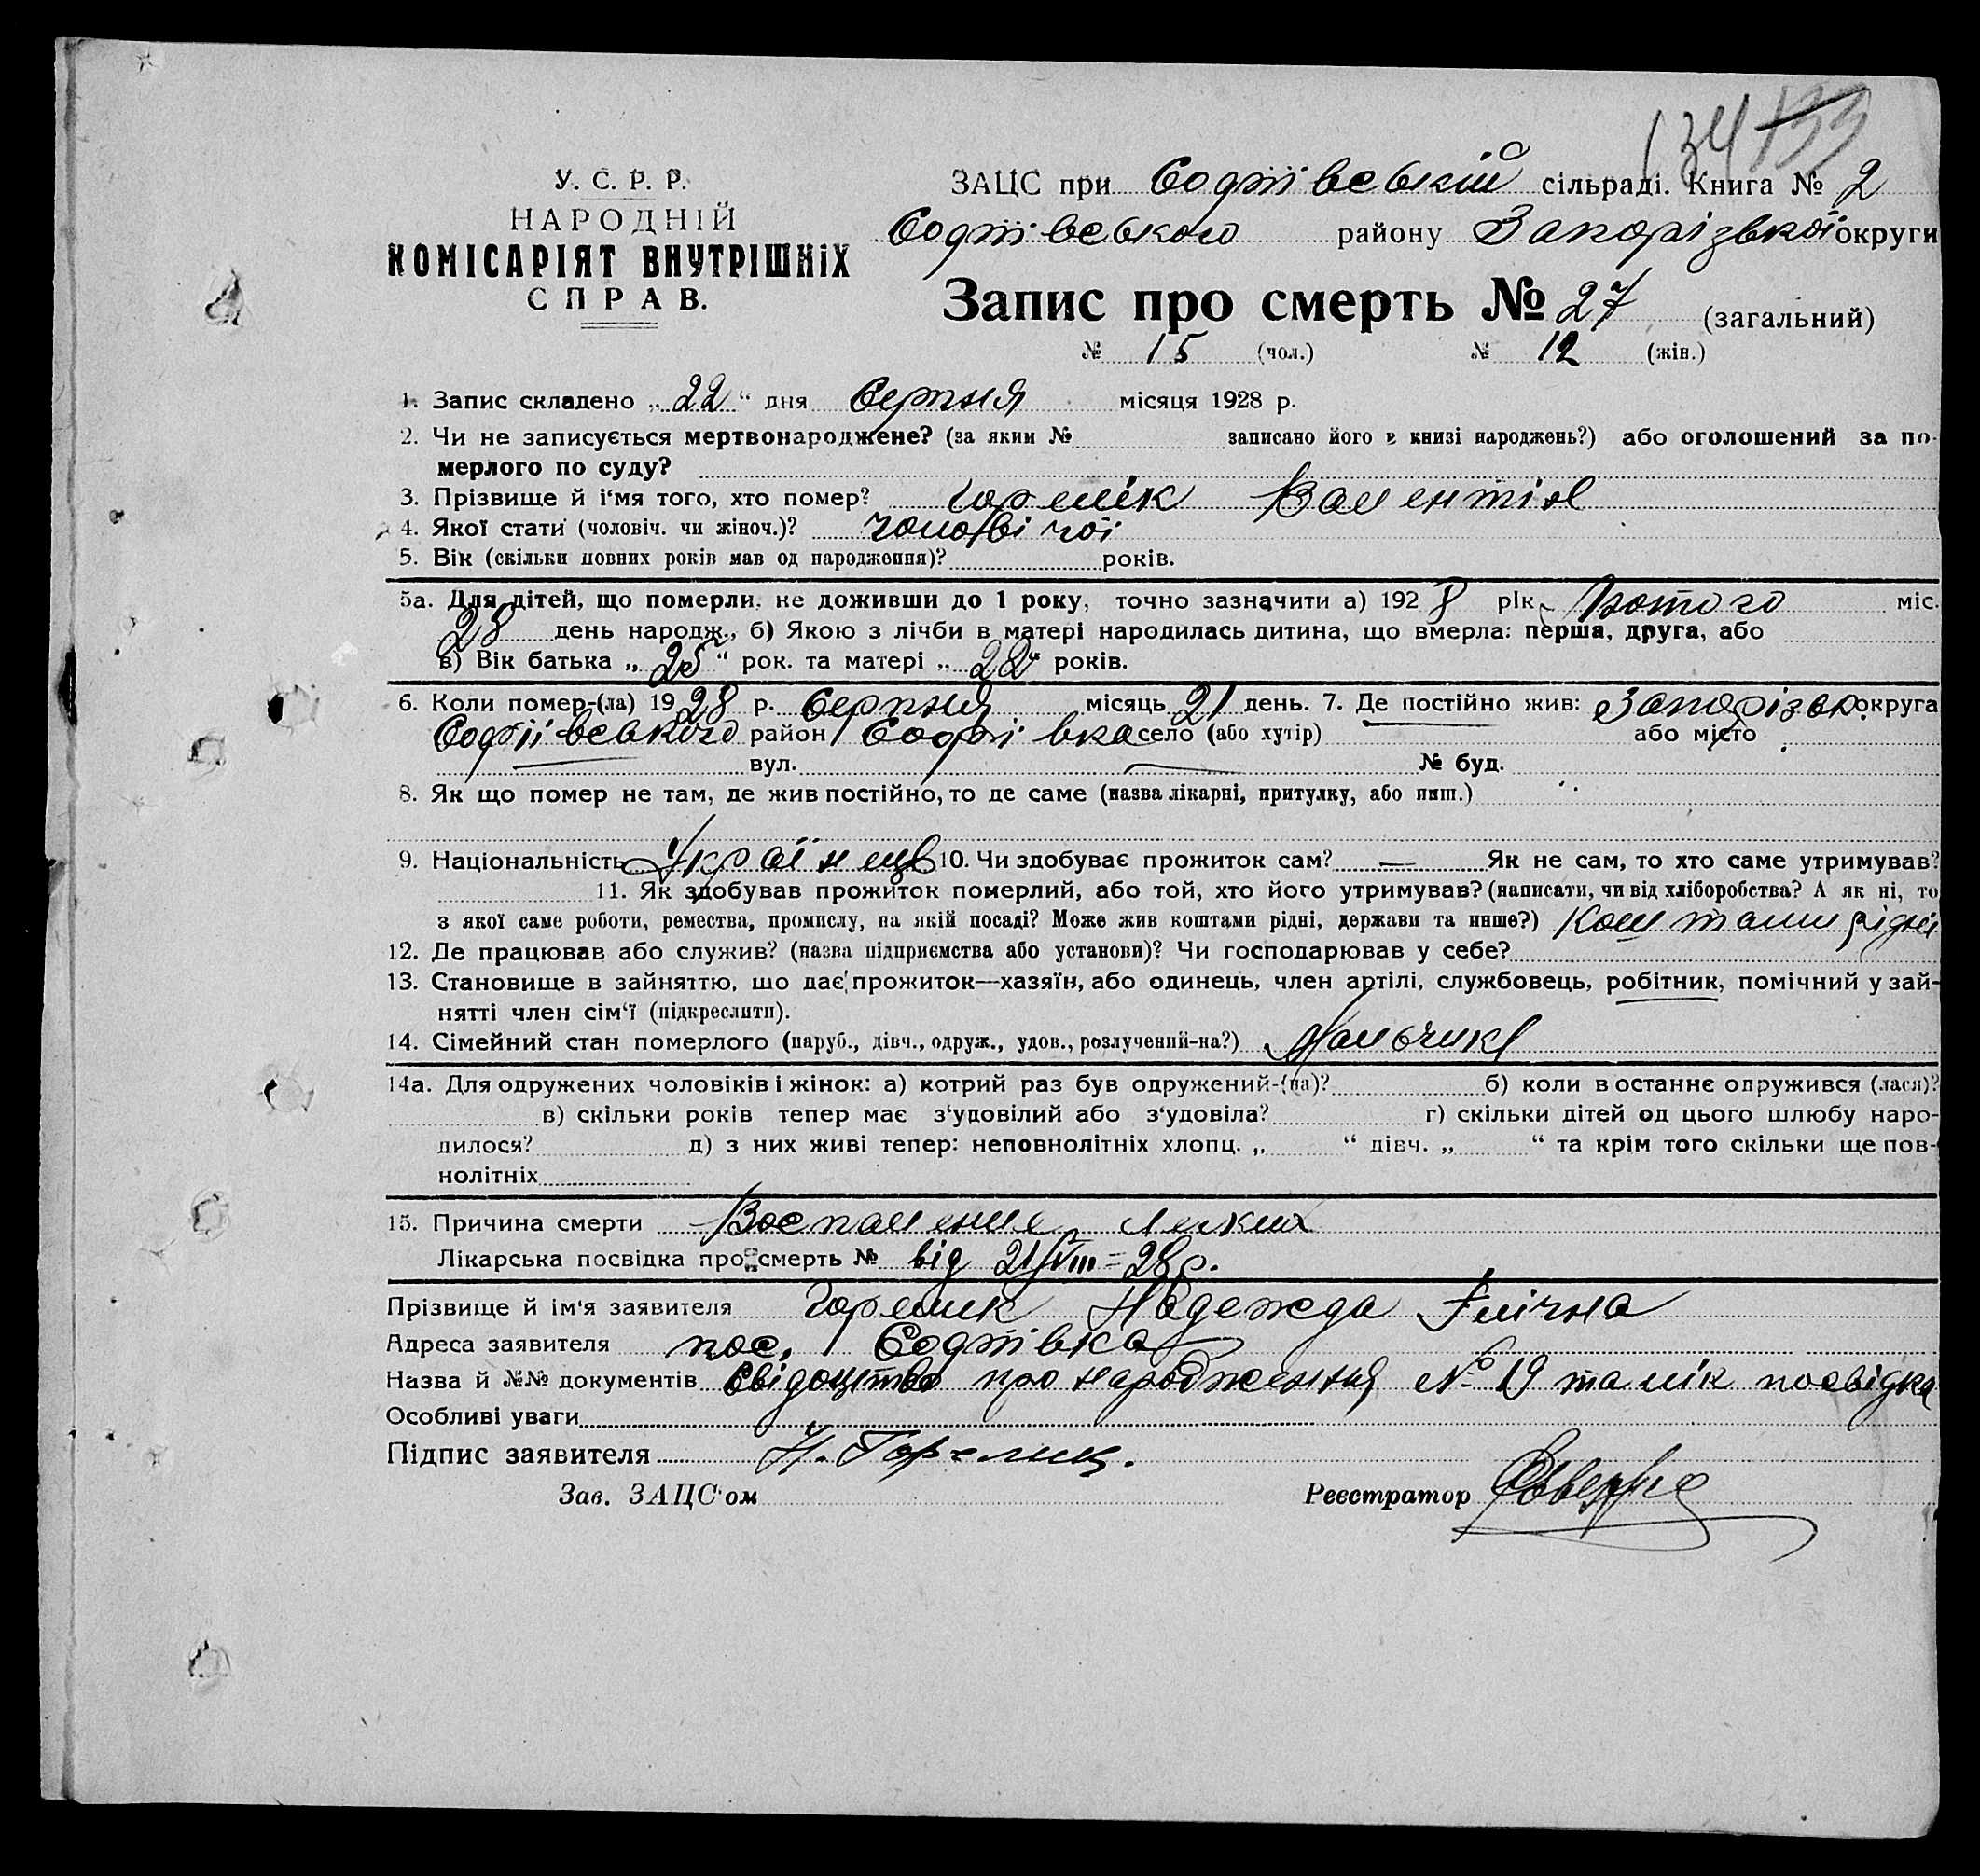 134 133
У. С. Р. Р.
НАРОДНІЙ
КОМІСАРІЯТ ВНУТРІШНІХ
СПРАВ.
ЗАЦС при Софіівській сільраді. Книга № 2
Софіівського району Запорізької округи
Запис про смерть № 27 (загальний)
№ 15 (чол.) № 12 (жін.)
1. Запис складено „22“ дня Серпня місяця 1928 р.
2. Чи не записується мертвонароджене? (за яким № записано його в книзі народжень?) або оголошений за по-
мерлого по суду?
3. Прізвище й і‘мя того, хто помер? Горелік Валентін
4. Якої стати (чоловіч. чи жіноч.)? чоловічої
5. Вік (скільки повних років мав од народження)? років.
5а. Для дітей, що померли, не доживши до 1 року, точно зазначити а) 1928 рік Лютого міс.
28 день народж., б) Якою з лічби в матері народилась дитина, що вмерла: перша, друга, або
в) Вік батька „25“ рок. та матері „22“ років.
6. Коли помер-(ла) 1928 р. Серпня місяць 21 день. 7. Де постійно жив: Запорізьк. округа
Софіівського район Софіівка село (або хутір) або місто
вул. № буд.
8. Як що помер не там, де жив постійно, то де саме (назва лікарні, притулку, або инш.)
9. Національність Українець 10. Чи здобуває прожиток сам? — Як не сам, то хто саме утримував?
11. Як здобував прожиток померлий, або той, хто його утримував? (написати, чи від хліборобства? А як ні, то
з якої саме роботи, ремества, промислу, на якій посаді? Може жив коштами рідні, держави та инше?) Коштами рідні
12. Де працював або служив? (назва підприємства або установи)? Чи господарював у себе?
13. Становище в зайняттю, що дає прожиток—хазяїн, або одинець, член артілі, службовець, робітник, помічний у зай-
нятті член сім‘ї (підкреслити).
14. Сімейний стан померлого (паруб., дівч., одруж., удов., розлучений-на?) Мальчик
14а. Для одружених чоловіків і жінок: а) котрий раз був одружений-(на)? б) коли в останнє одружився (лася)?
в) скільки років тепер має з‘удовілий або з‘удовіла? г) скільки дітей од цього шлюбу наро-
дилося? д) з них живі тепер: неповнолітніх хлопц. „ “ дівч. „ “ та крім того скільки ще пов-
нолітніх
15. Причина смерти Воспаление легких
Лікарська посвідка про смерть № від 21/VIII-28р.
Прізвище й ім'я заявителя Горелик Надежда Ілічна
Адреса заявителя пос. Софіівка
Назва й №№ документів Свідоцтво про народження № 19 та лік посвідка
Особливі уваги
Підпис заявителя Н. Горелик.
Зав. ЗАЦС'ом Реєстратор